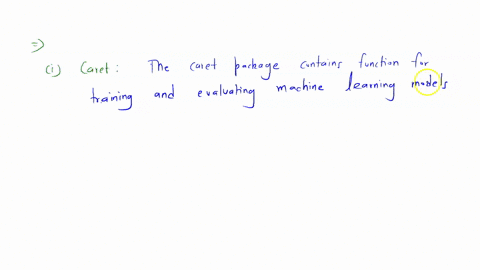 ⇒
(i) Caret : The caret package contains function for
training and evaluating machine learning models